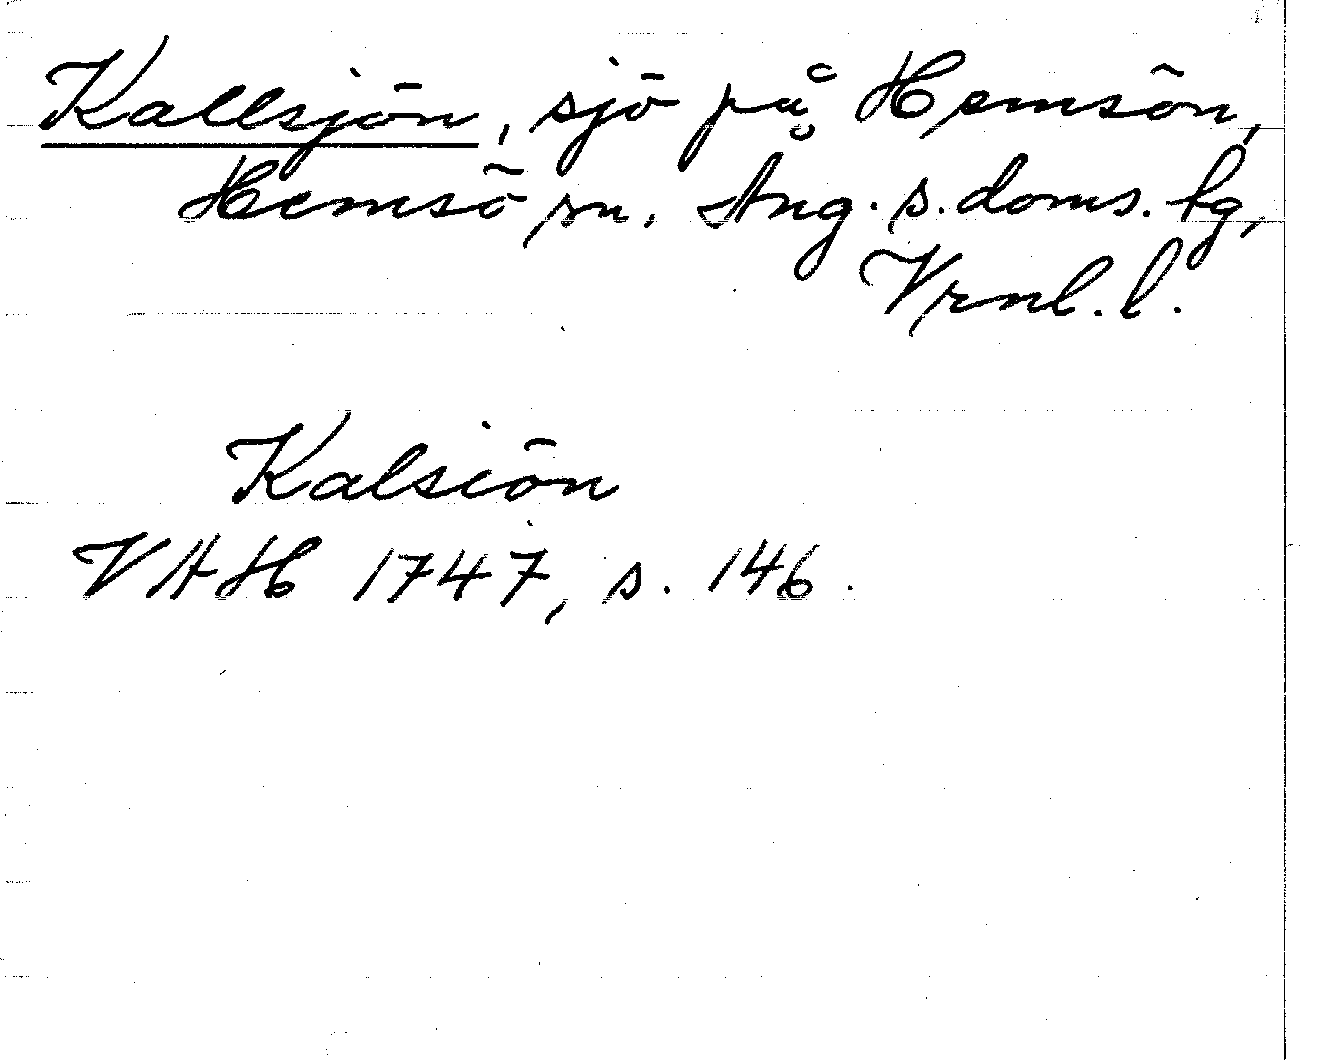 Kallsjön, sjö på Hemsön,
Hemsö sn. Ång. s. doms. lg,
Vrnl. l.
Kalsiön
VHH 1747, s. 146.